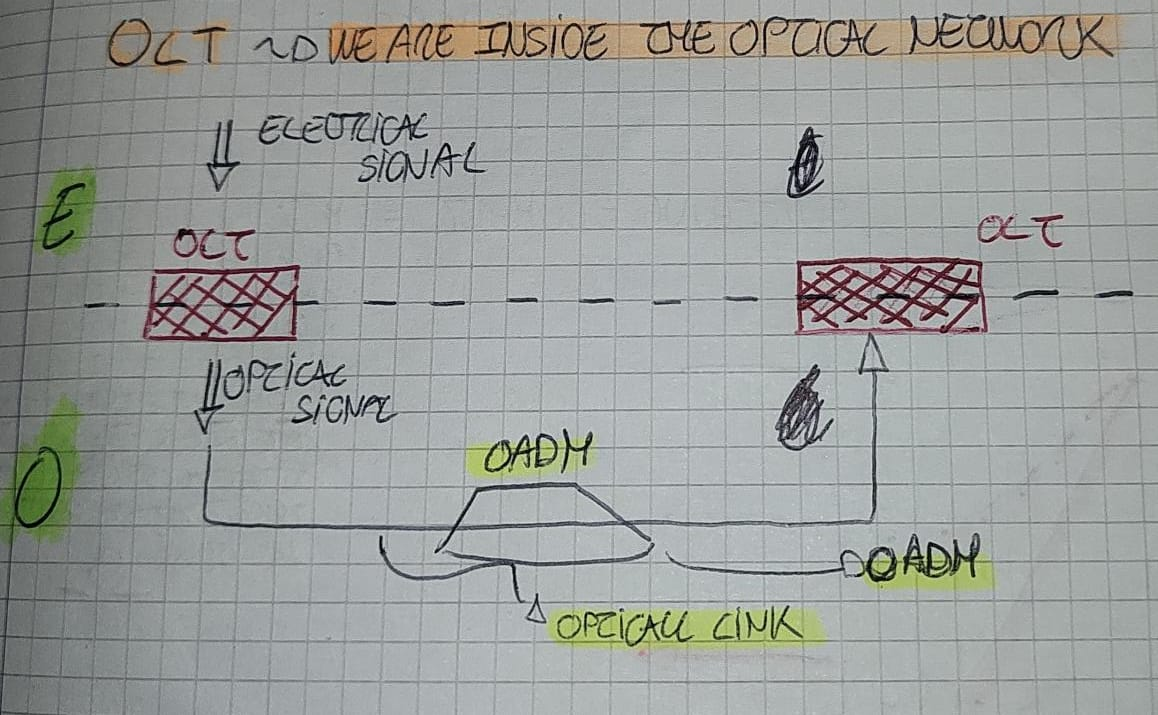 OLT → WE ARE INSIDE THE OPTICAL NETWORK
ELECTRICAL
SIGNAL
E
OLT
OLT
OPTICAL
SIGNAL
O
OADM
OADM
OPTICALL LINK